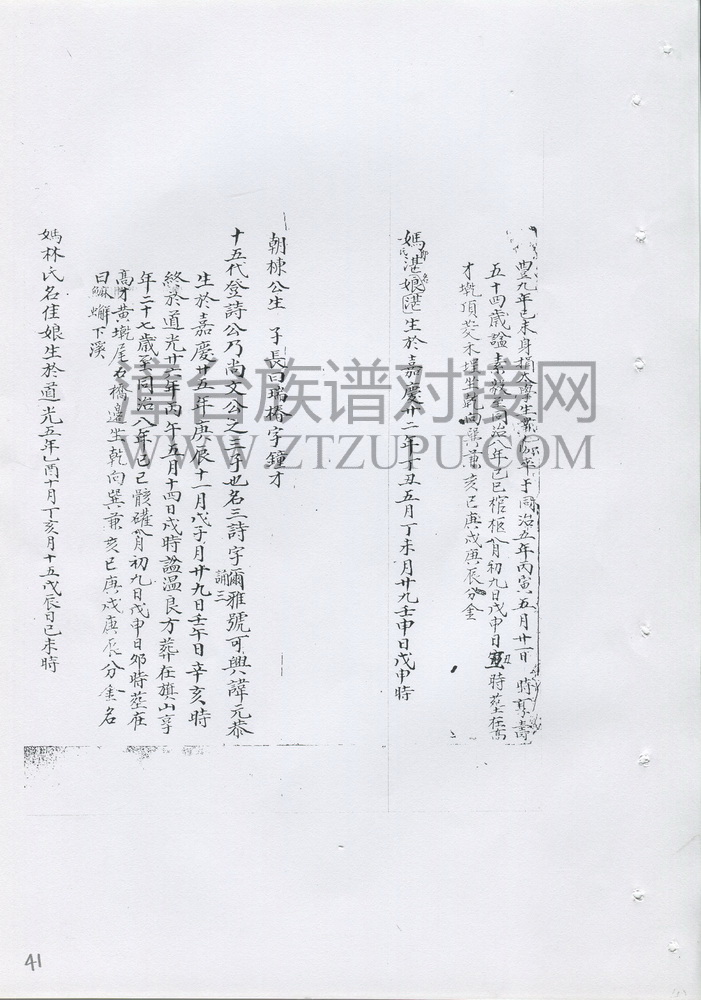 豐九年己未身捐大學生卒于同治五年丙寅五月廿一日 時享壽
五十四歲諡素敦至同治八年己巳棺柩八月初九日戊申日丑時塟在高
才墘頂芠未埕坐乾向巽兼亥巳庚戌庚辰分金
媽湛娘 生於嘉慶廿二年丁丑五月丁未月廿九壬申日戊申時
朝棟公生 子長曰瑞椿字鐘才
十五代登詩公乃尚文公之三子也名三詩字爾雅號可興諱元恭
誦三
生於嘉慶廿五年庚辰十一月戊子月廿九日壬午日辛亥時
終於道光廿六年丙午五月十四日戌時諡温良方葬在旗山享
年二十七歲至同治八年己巳骸礶八月初九日戊申日卯時塟在
高才黄墘尾右橋邉坐乾向巽兼亥巳庚戌庚辰分金名
曰蟧下溪
媽林氏名佳娘生於道光五年乙酉十月丁亥月十五戊辰日己未時
漳台族谱对接网
WWW.ZTZUPU.COM
41